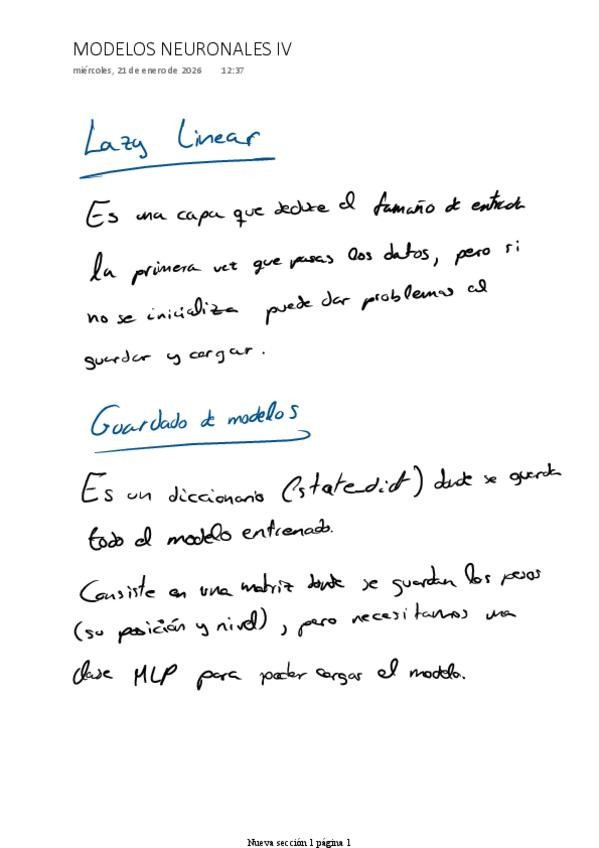 MODELOS NEURONALES IV
miércoles, 21 de enero de 2026 12:37
Lazy Linear
Es una capa que deduce el tamaño de entrada
la primera vez que pasas los datos, pero si
no se inicializa puede dar problemas al
guardar y cargar.
Guardado de modelos
Es un diccionario (statedict) donde se guarda
todo el modelo entrenado.
Consiste en una matriz donde se guardan los pesos
(su posición y nivel), pero necesitamos una
clase MLP para poder cargar el modelo.
Nueva sección 1 página 1